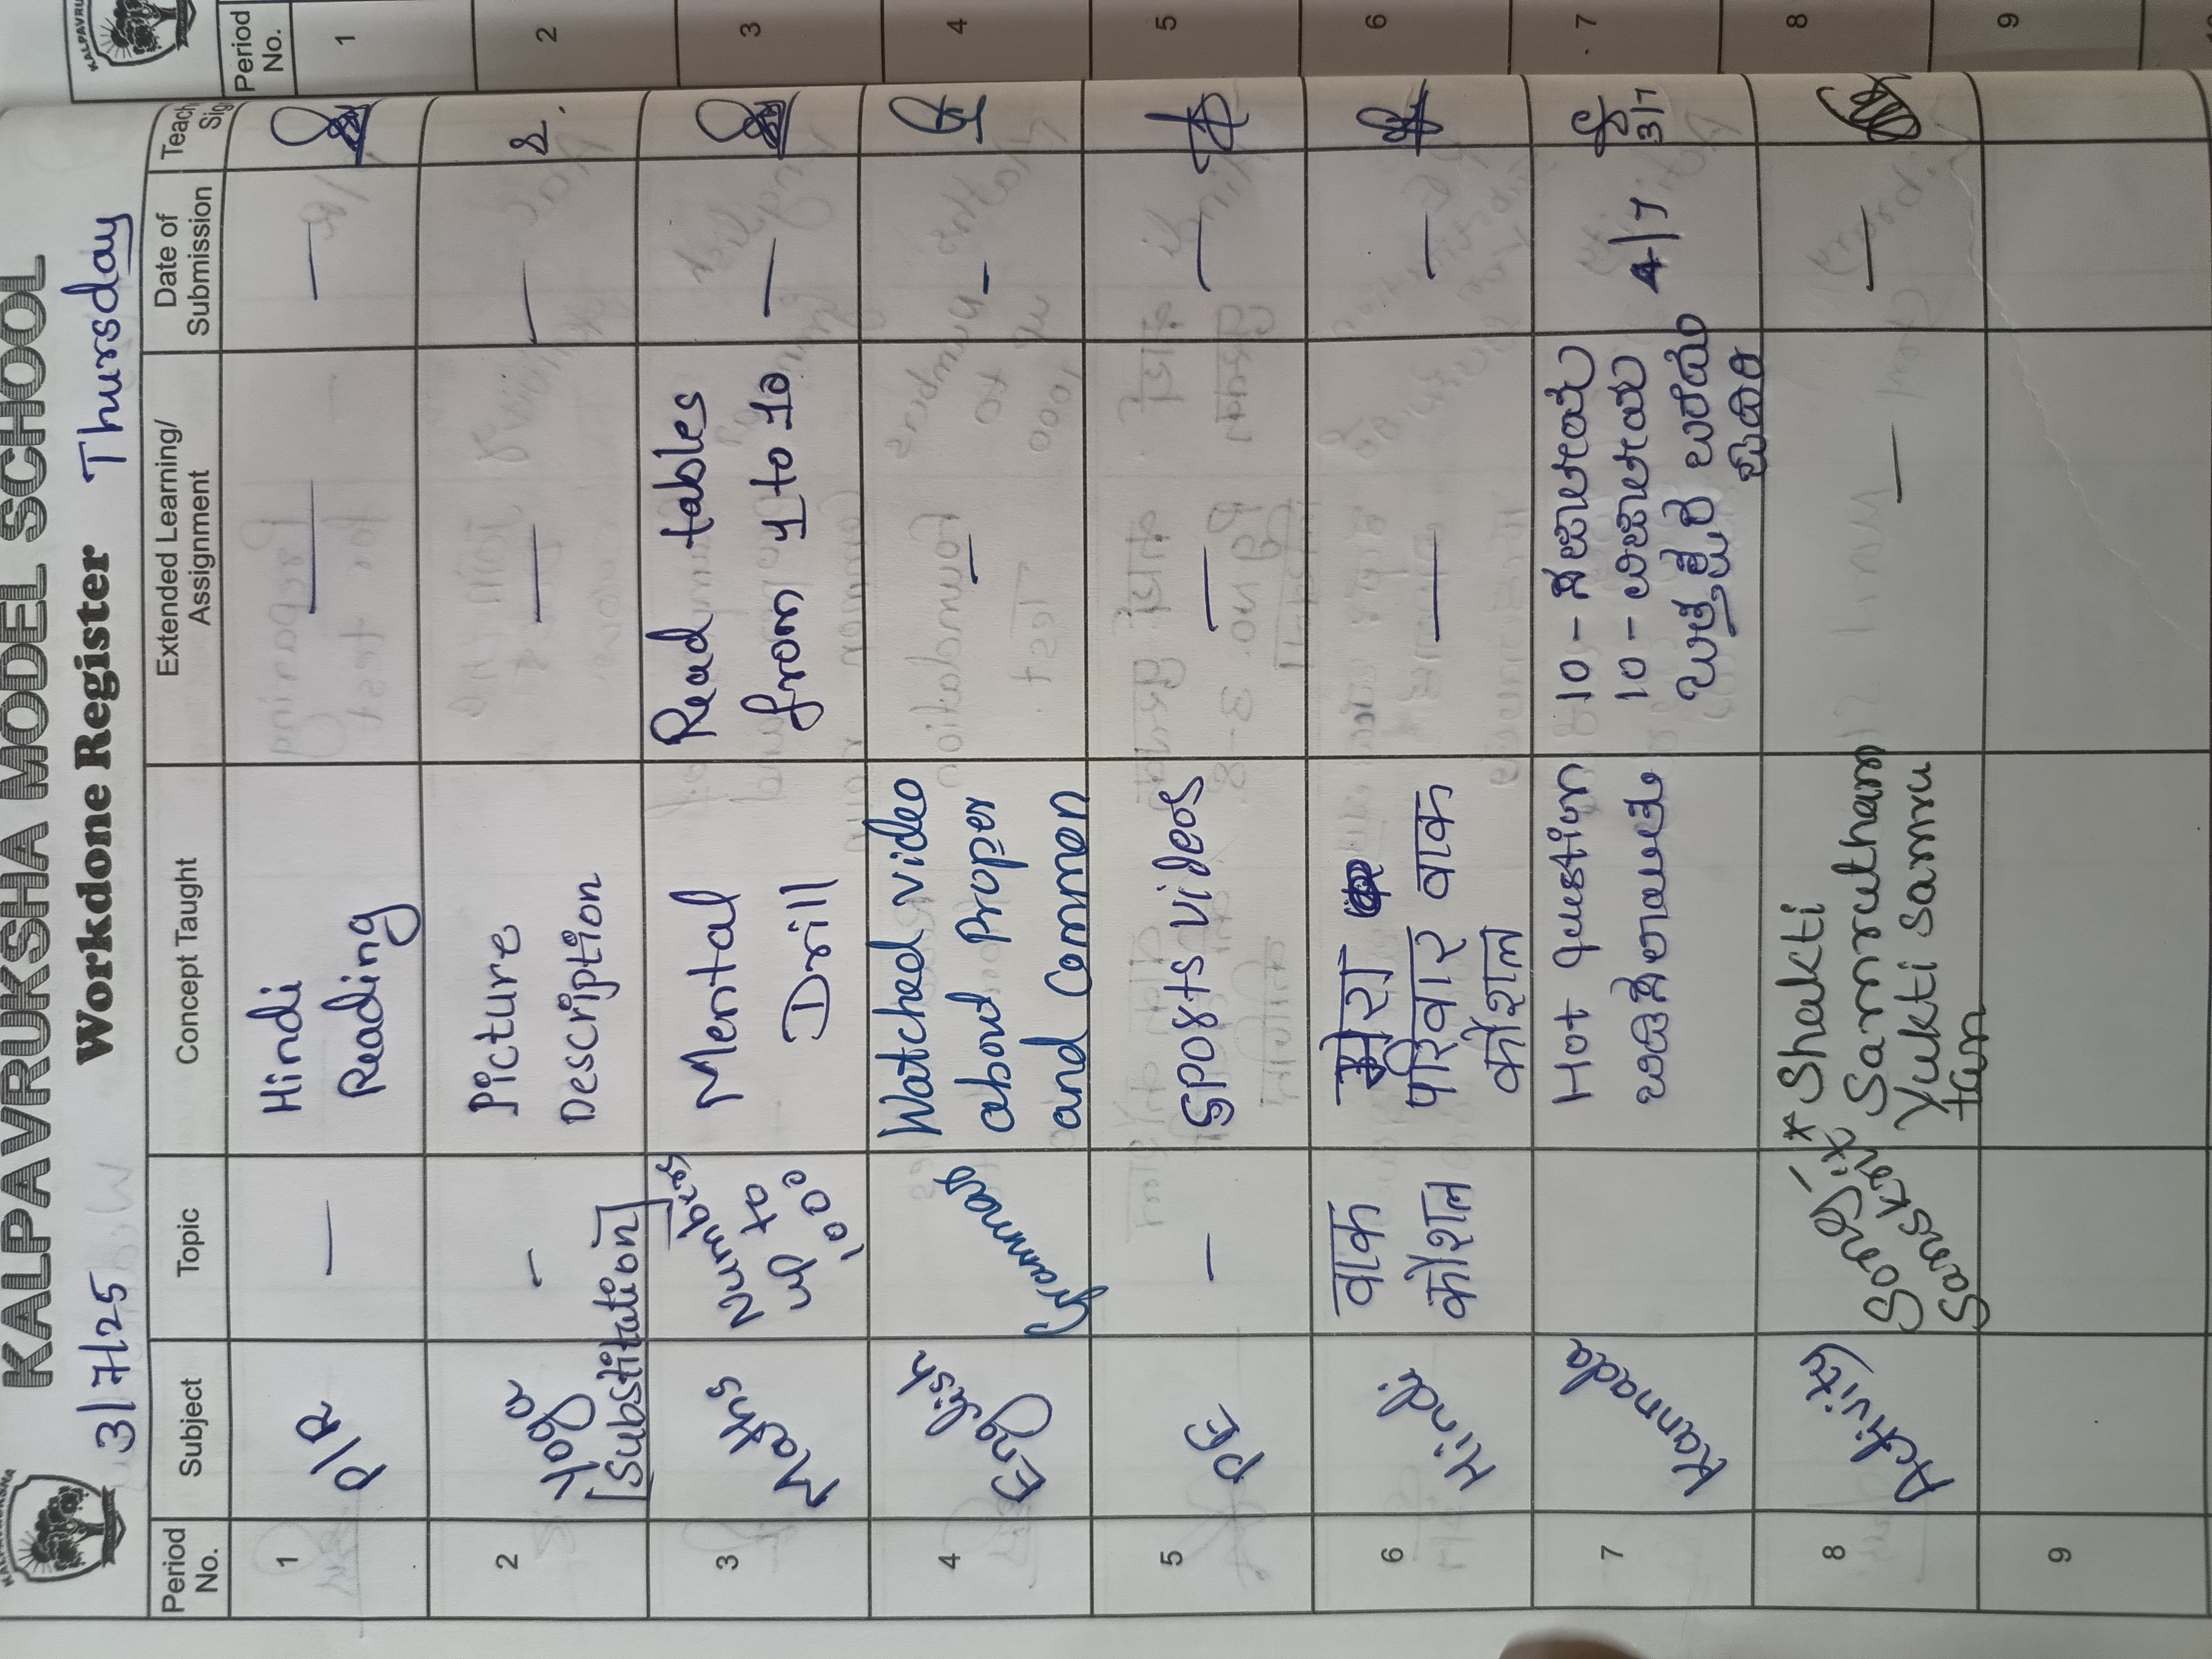 KALPAVRUKSHA MODEL SCHOOL
3/7/25 Workdone Register Thursday
Period No.
Subject
Topic
Concept Taught
Extended Learning/ Assignment
Date of Submission
Teach Sig
1
P/R
—
Hindi
Reading
—
—
2
Yoga
[Substitution]
-
Picture
Description
—
—
3
Maths
Numbers
up to
1000
Mental
Drill
Read tables
from 4 to 10
—
4
English
Grammar
Watched video
about Proper
and Common
-
-
5
PE
—
Sports Videos
—
—
6
Hindi
वाक
कौशल
मेरा
परिवार वाक
कौशल
—
—
7
Kannada
Hot question
10 - ಸಜಾತೀಯ
10 - ವಿಜಾತೀಯ
ಒತ್ತಕ್ಷರ ಬರೆದು
4/7
3/7
8
Activity
Song -
* Shakti
Samrutham
Yukti samru
tam
—
—
9
Period
No.
1
2
3
4
5
6
7
8
9